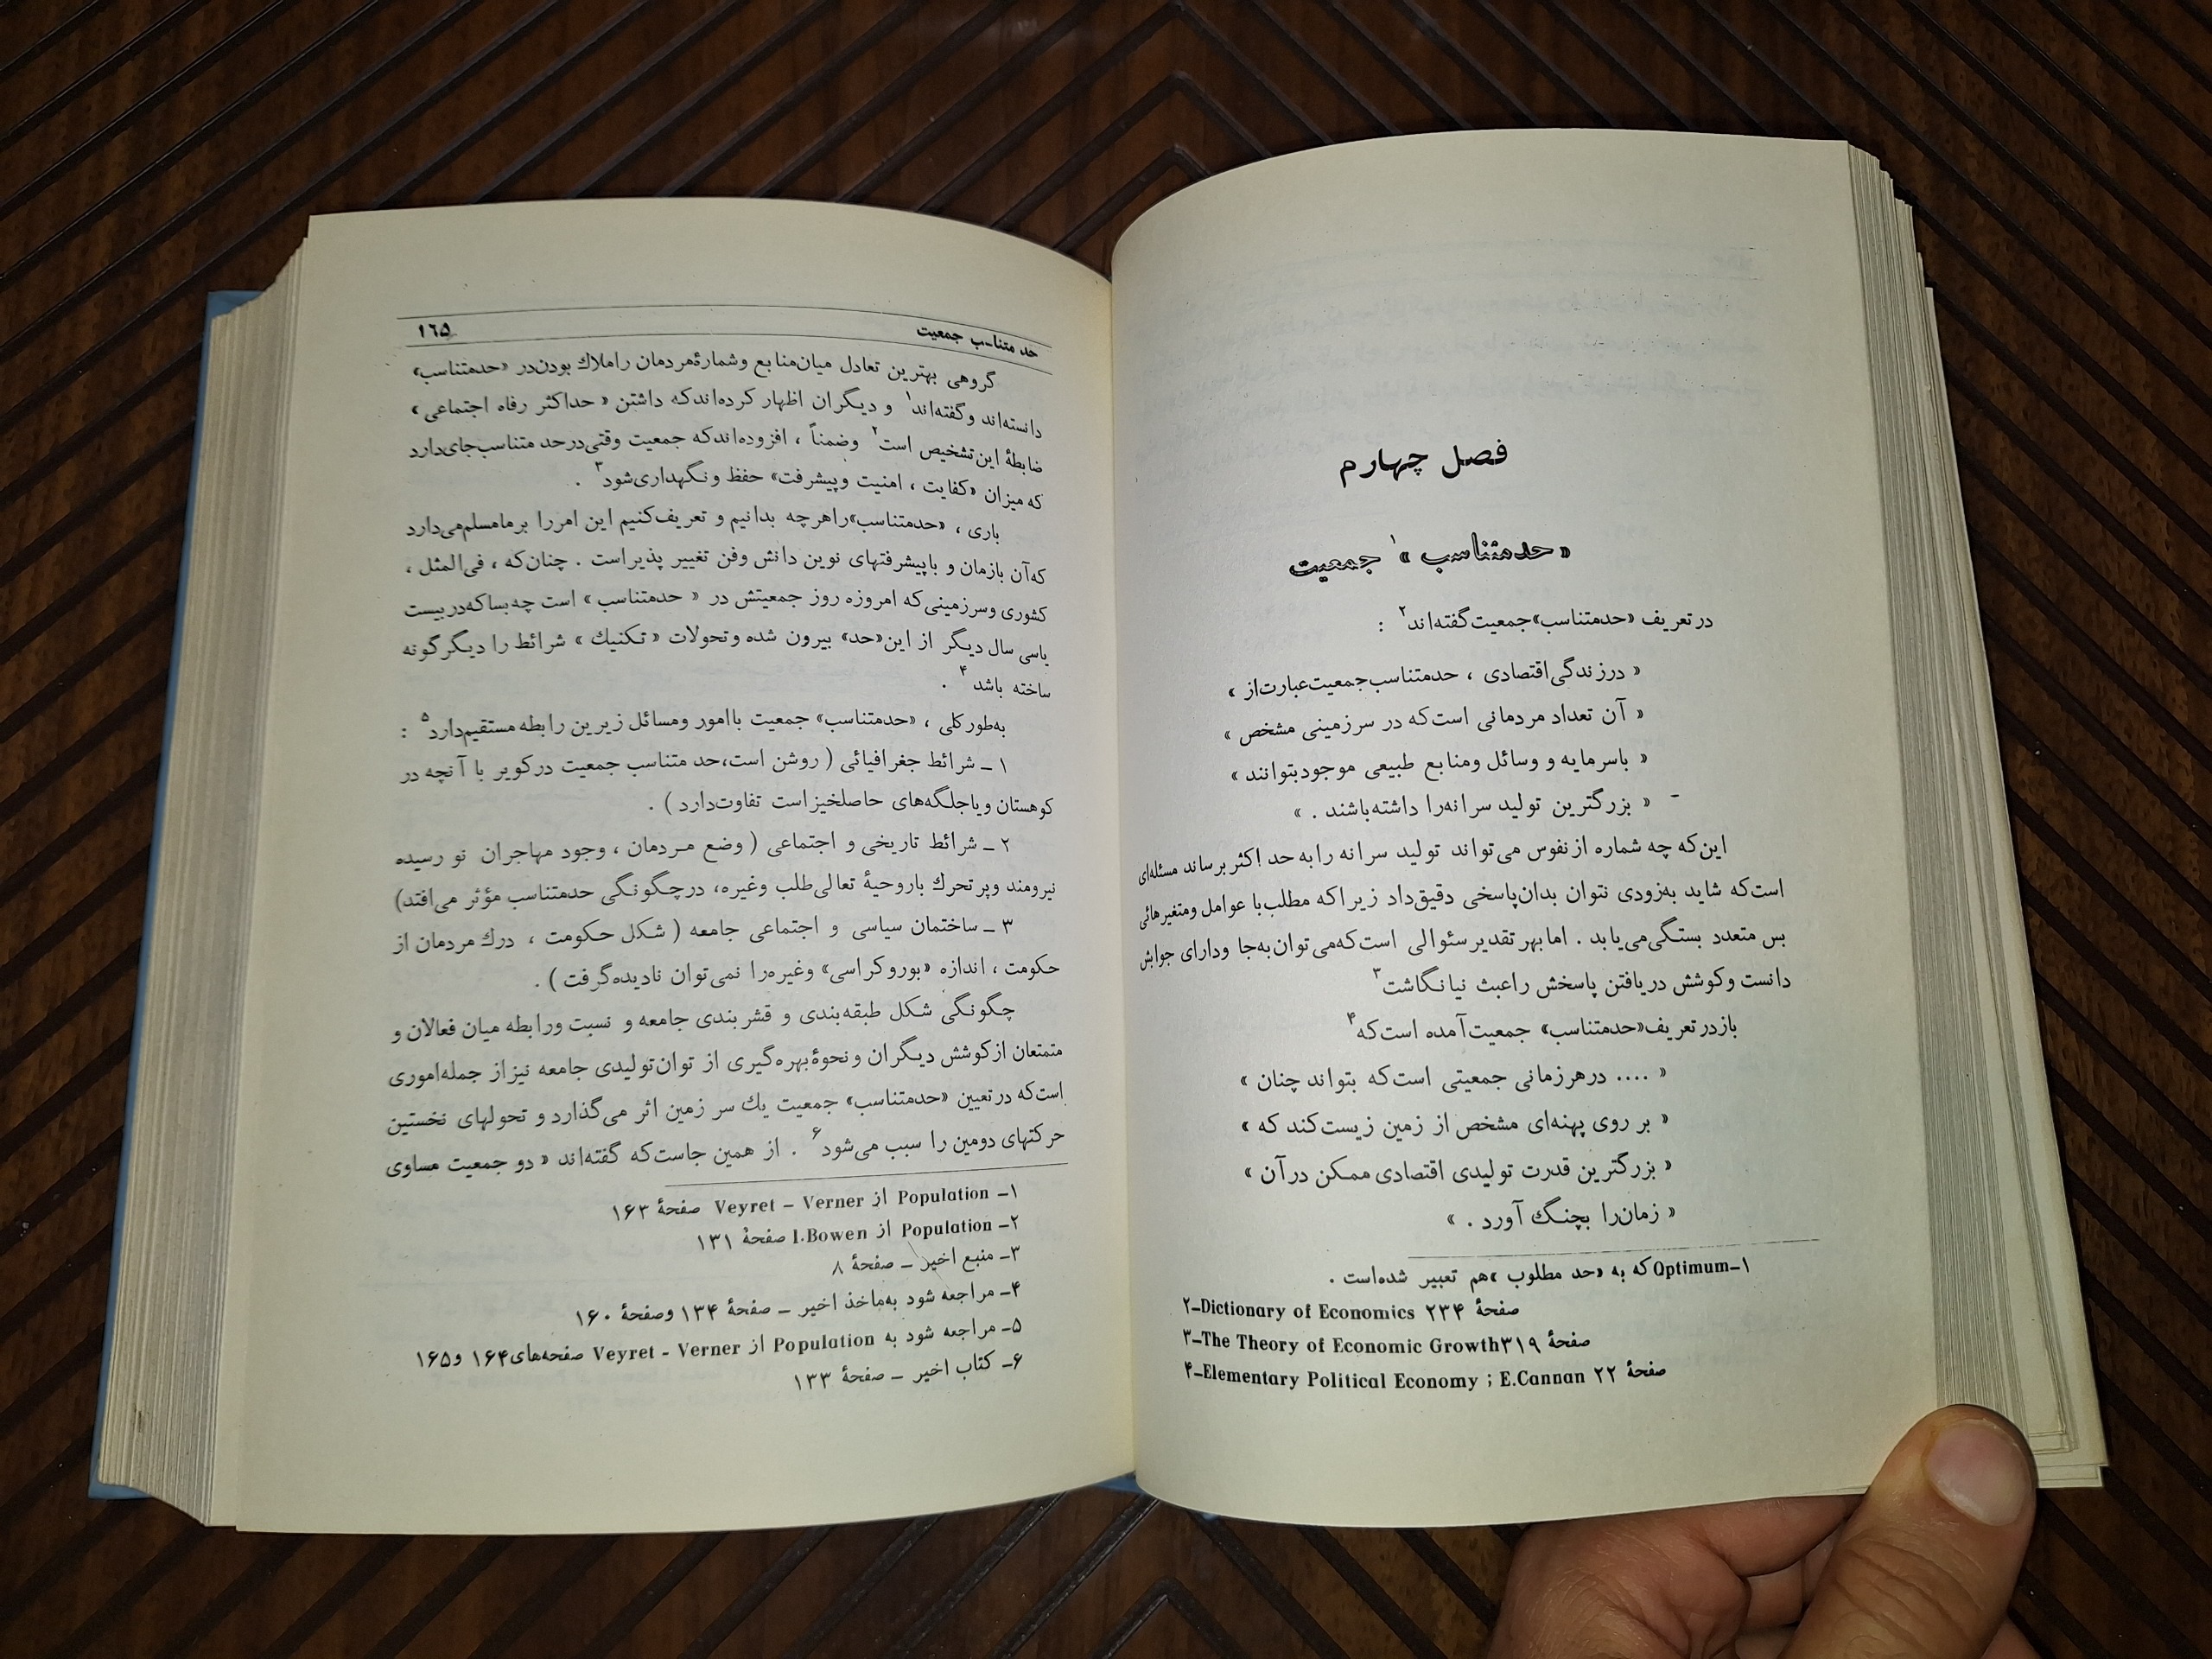 فصل چهارم
«حدمتناسب»۱ جمعیت
در تعریف «حدمتناسب» جمعیت گفته‌اند۲ :
« در زندگی اقتصادی ، حدمتناسب جمعیت عبارت از »
« آن تعداد مردمانی است که در سرزمینی مشخص »
« باسرمایه و وسائل ومنابع طبیعی موجود بتوانند »
« بزرگترین تولید سرانه‌را داشته‌باشند . »
این‌که چه شماره از نفوس می‌تواند تولید سرانه را به حد اکثر برساند مسئله‌ای
است‌که شاید به‌زودی نتوان بدان پاسخی دقیق داد زیرا که مطلب با عوامل ومتغیرهائی
بس متعدد بستگی‌می‌یابد . اما بهر تقدیر سئوالی است که‌می‌توان به‌جا ودارای جوابش
دانست وکوشش دریافتن پاسخش راعبث نیانگاشت۳
باز در تعریف «حدمتناسب» جمعیت آمده است‌که۴
« .... درهر زمانی جمعیتی است‌که بتواند چنان »
« بر روی پهنه‌ای مشخص از زمین زیست‌کند که »
« بزرگترین قدرت تولیدی اقتصادی ممکن در آن »
« زمان‌را بچنگ آورد . »
۱-Optimum که به «حد مطلوب »هم تعبیر شده‌است .
۲-Dictionary of Economics صفحهٔ ۲۳۴
۳-The Theory of Economic Growth صفحهٔ ۳۱۹
۴-Elementary Political Economy ; E.Cannan صفحهٔ ۲۲
حد متنا-ب جمعیت ۱۶۵
گروهی بهترین تعادل میان‌منابع وشمارهٔ‌مردمان راملاك بودن‌در «حدمتناسب»
دانسته‌اند وگفته‌اند۱ و دیگران اظهار کرده‌اندکه داشتن « حداکثر رفاه اجتماعی »
ضابطهٔ این‌تشخیص است۲ وضمناً ، افزوده‌اندکه جمعیت وقتی‌درحد متناسب‌جای‌دارد
که میزان «کفایت ، امنیت وپیشرفت» حفظ ونگهداری‌شود۳ .
باری ، «حدمتناسب»راهرچه بدانیم و تعریف‌کنیم این امررا برمامسلم‌می‌دارد
که‌آن بازمان و باپیشرفتهای نوین دانش وفن تغییر پذیر است . چنان‌که ، فی‌المثل ،
کشوری وسرزمینی‌که امروزه روز جمعیتش در « حدمتناسب » است چه‌بساکه‌دربیست
یاسی سال دیگر از این«حد» بیرون شده وتحولات « تکنیك » شرائط را دیگرگونه
ساخته باشد۴ .
به‌طورکلی ، «حدمتناسب» جمعیت باامور ومسائل زیرین رابطه مستقیم‌دارد۵ :
۱ - شرائط جغرافیائی ( روشن است،حد متناسب جمعیت درکویر با آنچه در
کوهستان ویاجلگه‌های حاصلخیز است تفاوت‌دارد ) .
۲ - شرائط تاریخی و اجتماعی ( وضع مردمان ، وجود مهاجران نو رسیده
نیرومند وپر تحرك باروحیهٔ تعالی‌طلب وغیره، درچگونگی حدمتناسب مؤثر می‌افتد)
۳ - ساختمان سیاسی و اجتماعی جامعه ( شکل حکومت ، درك مردمان از
حکومت ، اندازه «بوروکراسی» وغیره‌را نمی‌توان نادیده‌گرفت ) .
چگونگی شکل طبقه‌بندی و قشر بندی جامعه و نسبت ورابطه میان فعالان و
متمتعان ازکوشش دیگران ونحوهٔ‌بهره‌گیری از توان‌تولیدی جامعه نیز از جمله‌اموری
است‌که درتعیین «حدمتناسب» جمعیت یك سر زمین اثر می‌گذارد و تحولهای نخستین
حرکتهای دومین را سبب می‌شود۶ . از همین جاست‌که گفته‌اند « دو جمعیت مساوی
۱- Population از Veyret - Verner صفحهٔ ۱۶۳
۲- Population از I.Bowen صفحهٔ ۱۳۱
۳- منبع اخیر - صفحهٔ ۸
۴- مراجعه شود به‌ماخذ اخیر - صفحهٔ ۱۳۴ وصفحهٔ ۱۶۰
۵- مراجعه شود به Population از Veyret - Verner صفحه‌های۱۶۴ و۱۶۵
۶- کتاب اخیر - صفحهٔ ۱۳۳